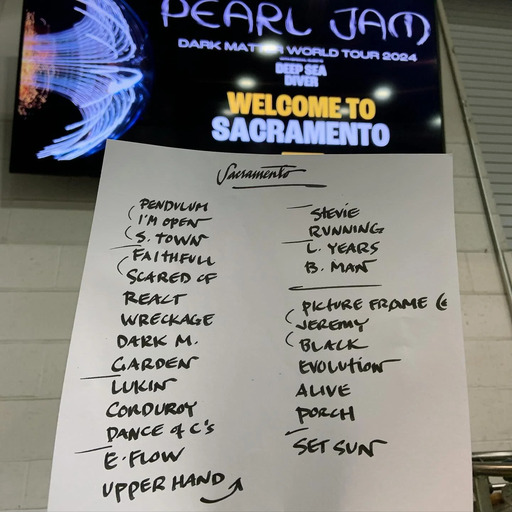 PEARL JAM
DARK MATTER WORLD TOUR 2024
DEEP SEA
DIVER
WELCOME TO
SACRAMENTO
Sacramento
PENDULUM
I'M OPEN
S. TOWN
FAITHFULL
SCARED OF
REACT
WRECKAGE
DARK M.
GARDEN
LUKIN
CORDUROY
DANCE of C's
E. FLOW
UPPER HAND
STEVIE
RUNNING
L. YEARS
B. MAN
PICTURE FRAME
JEREMY
BLACK
EVOLUTION
ALIVE
PORCH
SET SUN